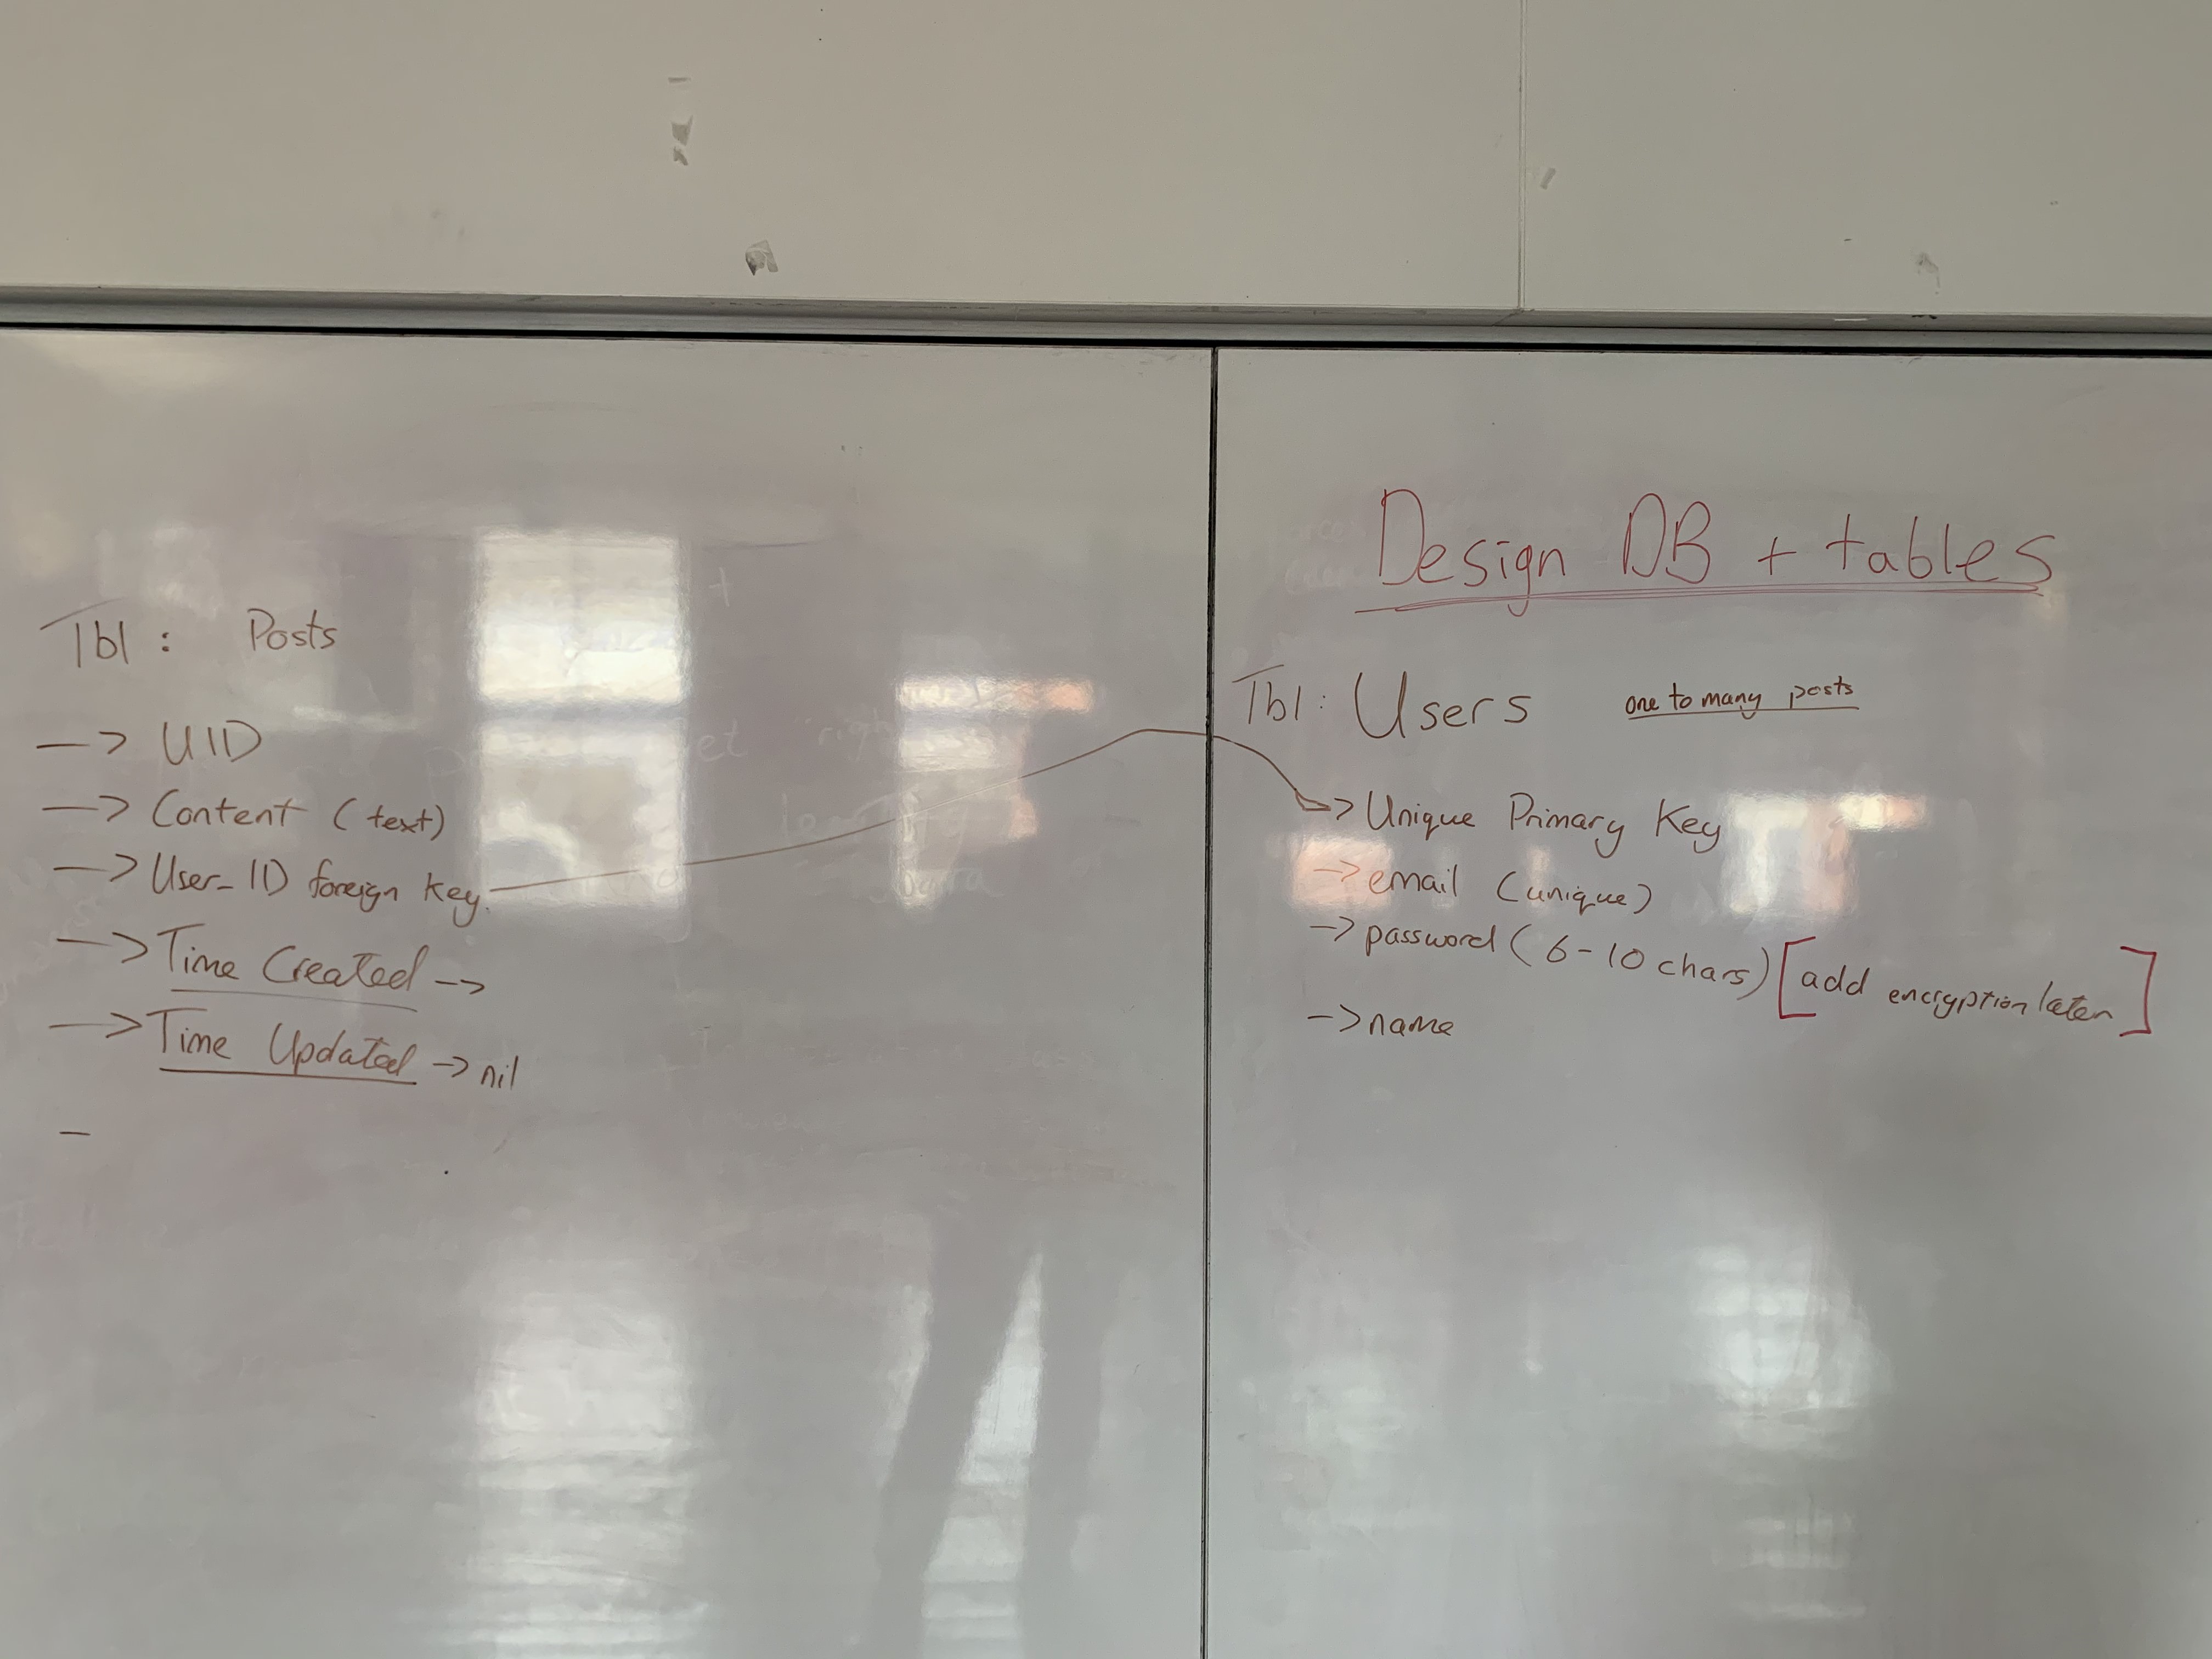 Tbl : Posts
-> UID
-> Content (text)
-> User_ID foreign key.
-> Time Created ->
-> Time Updated -> nil
-
Design DB + tables
Tbl: Users one to many posts
-> Unique Primary Key
-> email (unique)
-> password (6-10 chars) [add encryption later]
-> name